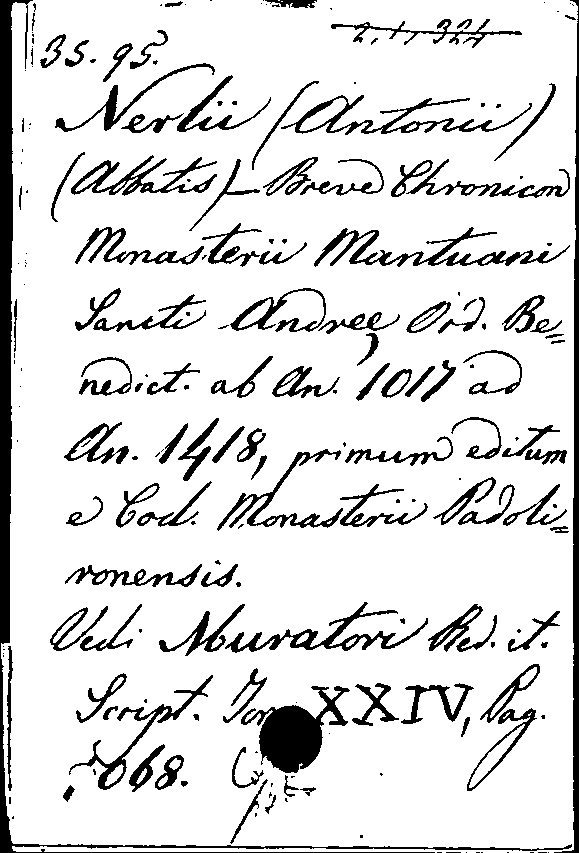 35. 95.
2, 1, 324
Nerlii (Antonii)
(Abbatis) - Breve Chronicon
Monasterii Mantuani
Sancti Andreę Ord. Be=
nedict. ab An. 1017 ad
An. 1418, primum editum
e Cod. Monasterii Padoli=
ronensis.
Vedi Muratori Red. it.
Script. Tom XXIV, Pag.
1068.